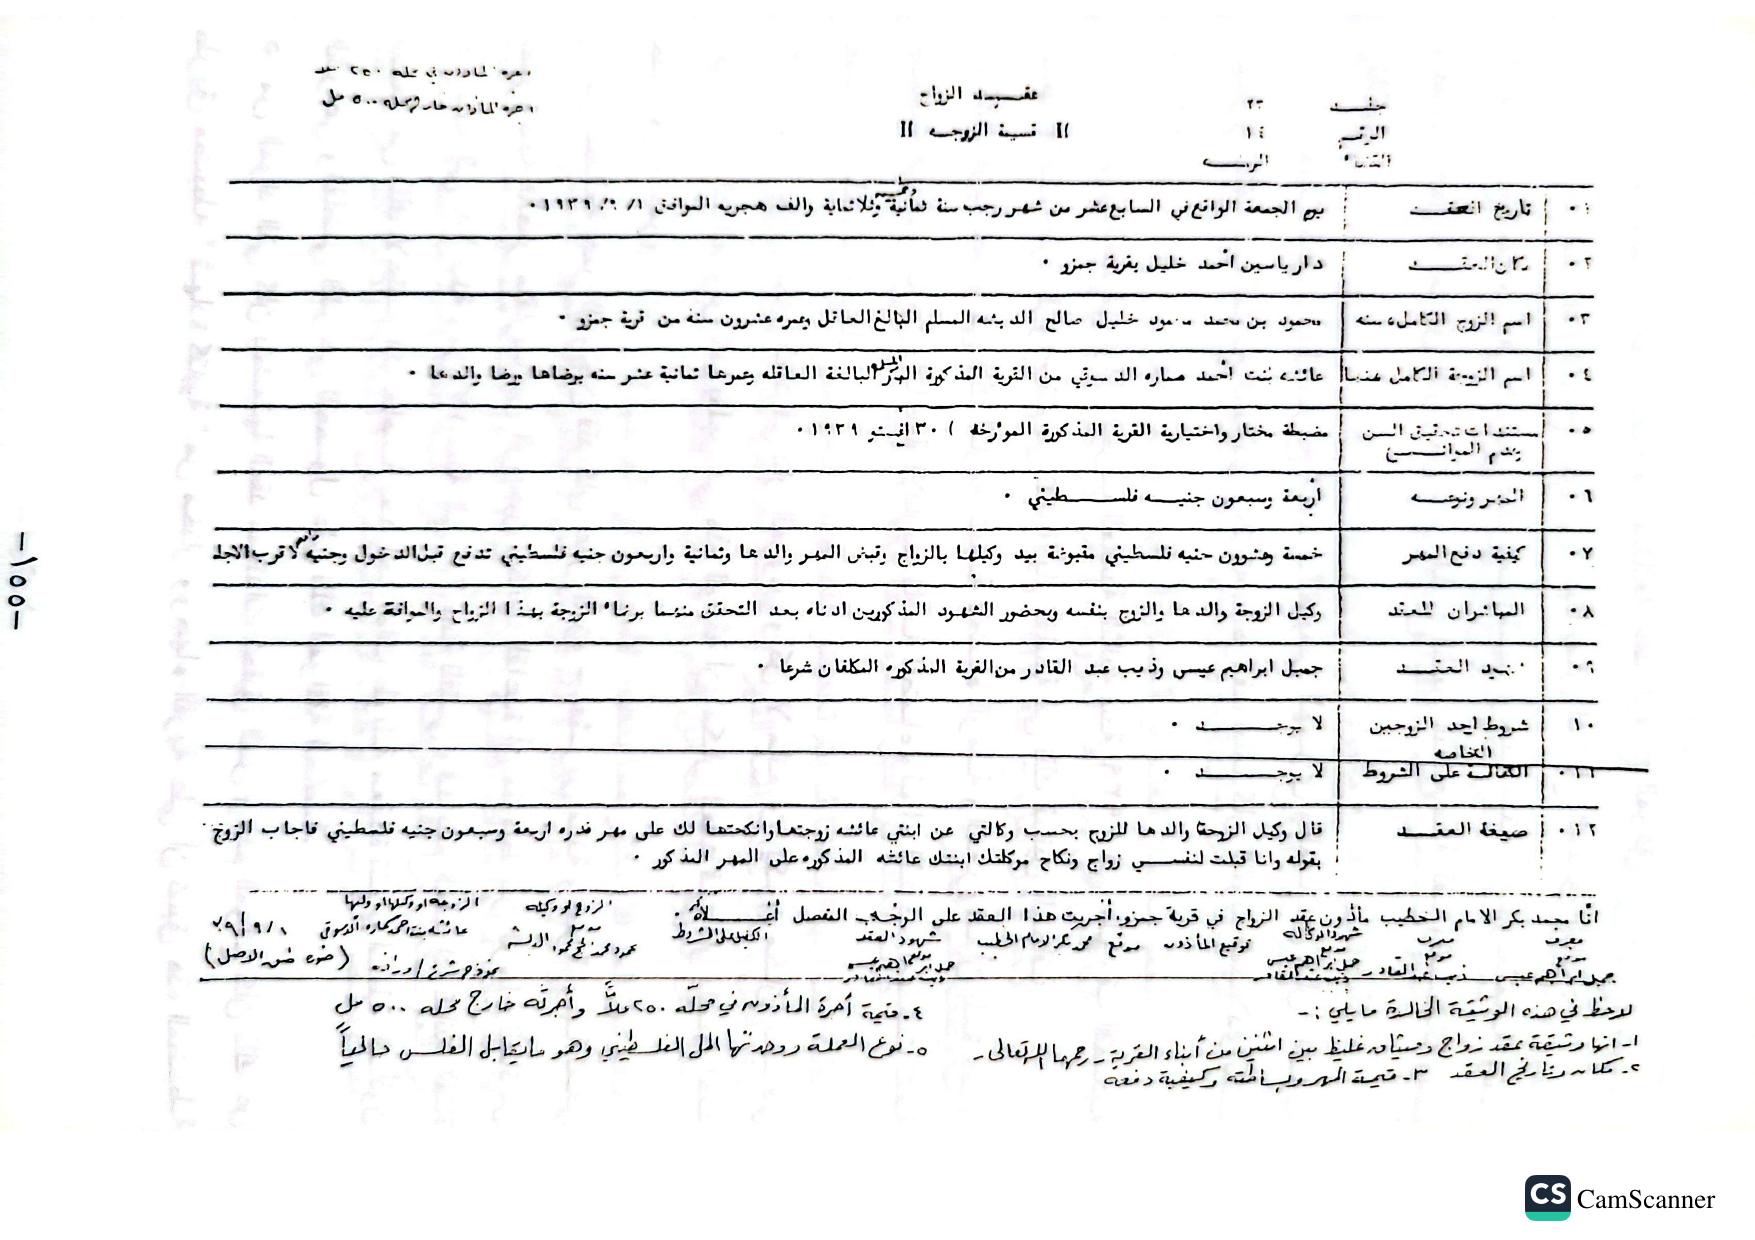 اجرة المأذون في محله ٢٥٠ ملا
اجرة المأذون خارج محله ٥٠٠ مل
عقد الزواج
" قسيمة الزوجه "
جلد ٢٣
الرقم ١٤
القضاء الرمله
٠١ تاريخ العقد يوم الجمعة الواقع في السابع عشر من شهر رجب سنة ثمانية وخمسين وثلاثماية والف هجريه الموافق ١/ ٩/ ١٩٣٩٠
٠٢ مكان العقد دار ياسين أحمد خليل بقرية جمزو ٠
٠٣ اسم الزوج الكامل وسنه محمود بن محمد محمود خليل صالح الدبشه المسلم البالغ العاقل وعمره عشرون سنه من قرية جمزو ٠
٠٤ اسم الزوجة الكامل وسنها عائشه بنت أحمد عماره الدسوقي من القرية المذكورة البكر المسلمه البالغة العاقله وعمرها ثمانية عشر سنه برضاها ورضا والدها ٠
٠٥ مستندات تحقيق السن وعدم الموانع مضبطة مختار واختيارية القرية المذكورة المؤرخة ) ٣٠ اغستو ١٩٣٩٠
٠٦ المهر ونوعه أربعة وسبعون جنيه فلسطيني ٠
٠٧ كيفية دفع المهر خمسة وعشرون جنيه فلسطيني مقبوضة بيد وكيلها بالزواج وقبض المهر والدها وثمانية واربعون جنيه فلسطيني تدفع قبل الدخول وجنيه واحد لاقرب الاجلين
٠٨ المباشران للعقد وكيل الزوجة والدها والزوج بنفسه وبحضور الشهود المذكورين ادناه بعد التحقق منهما برضاء الزوجة بهذا الزواج والموافقة عليه ٠
٠٩ شهود العقد جميل ابراهيم عيسى وذيب عبد القادر من القرية المذكوره المكلفان شرعا ٠
١٠ شروط احد الزوجين الخاصه لا يوجد ٠
٠١١ الكفالة على الشروط لا يوجد ٠
٠١٢ صيغة العقد قال وكيل الزوجة والدها للزوج بحسب وكالتي عن ابنتي عائشه زوجتها وانكحتها لك على مهر قدره اربعة وسبعون جنيه فلسطيني فاجاب الزوج
بقوله وانا قبلت لنفسي زواج ونكاح موكلتك ابنتك عائشه المذكوره على المهر المذكور ٠
انا محمد بكر الامام الخطيب مأذون عقد الزواج في قرية جمزو أجريت هذا العقد على الوجه المفصل أعلاه ٠
الزوج او وكيله الزوجه او وكيلها او وليها
معرف معرف شهود الوكاله توقيع المأذون موقع محمد بكر الامام الخطيب شهود العقد الكفيل على الشروط محمود محمد محمود الدبشة عائشه بنت احمد عماره الدسوقي ١/ ٩/ ٣٩
موقع جميل ابراهيم عيسى موقع ذيب عبد القادر موقع جميل ابراهيم عيسى موقع جميل ابراهيم عيسى (صوره طبق الاصل)
ذيب عبد القادر ذيب عبد القادر
لاحظ في هذه الوثيقة الخالدة ما يلي :-
١- انها وثيقة عقد زواج وميثاق غليظ بين اثنين من أبناء القرية - رحمهما الله تعالى -
٢- مكان وتاريخ العقد ٣- قيمة المهر وبساطته وكيفية دفعه
٤- قيمة أجرة المأذون في محله ٢٥٠ ملاً وأجرته خارج محله ٥٠٠ مل
٥- نوع العملة ووحدتها المل الفلسطيني وهو ما يقابل الفلس حالياً
-١٥٥-
CS CamScanner